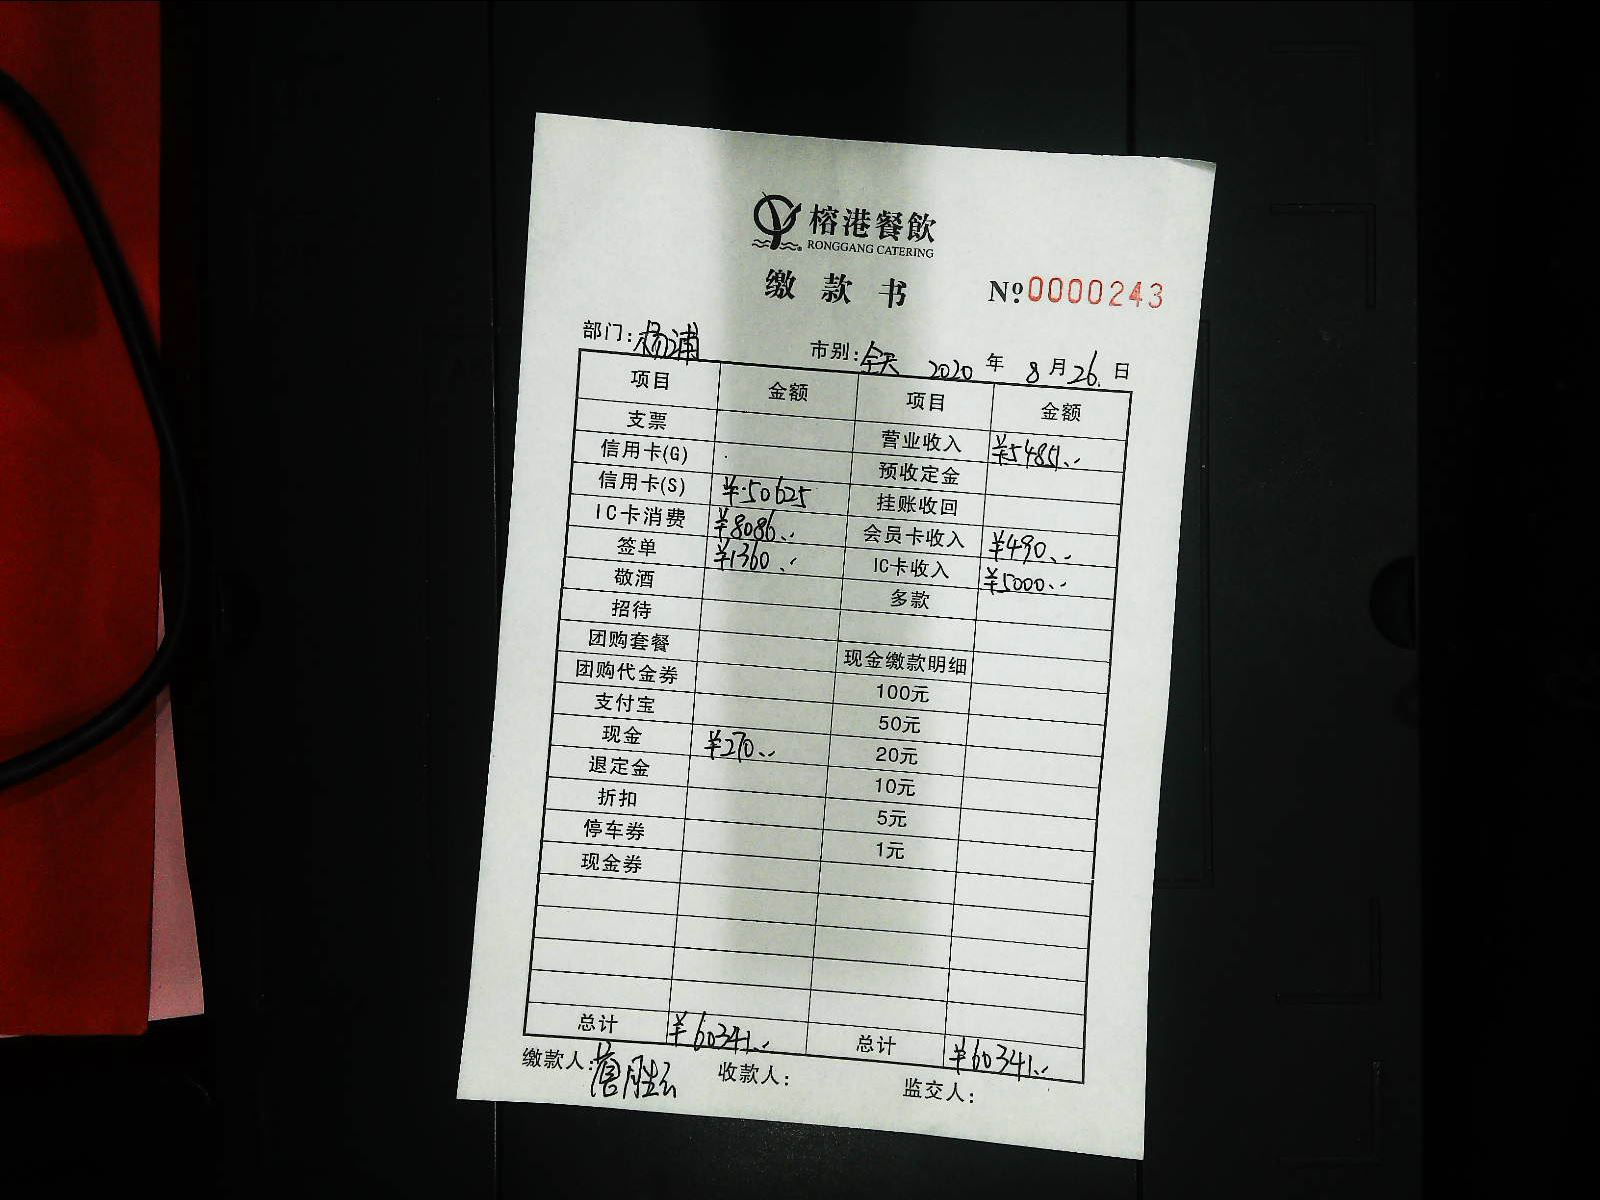 榕港餐飲
RONGGANG CATERING
缴款书 Nº0000243
部门:杨浦 市别:全天 2020年8月26日
项目 金额 项目 金额
支票 营业收入 ¥54851.--
信用卡(G) 预收定金
信用卡(S) ¥50625 挂账收回
IC卡消费 ¥8086.-- 会员卡收入 ¥490.--
签单 ¥1360.-- IC卡收入 ¥5000.--
敬酒 多款
招待
团购套餐 现金缴款明细
团购代金券 100元
支付宝 50元
现金 ¥270.-- 20元
退定金 10元
折扣 5元
停车券 1元
现金券
总计 ¥60341.-- 总计 ¥60341.--
缴款人: 收款人: 监交人: